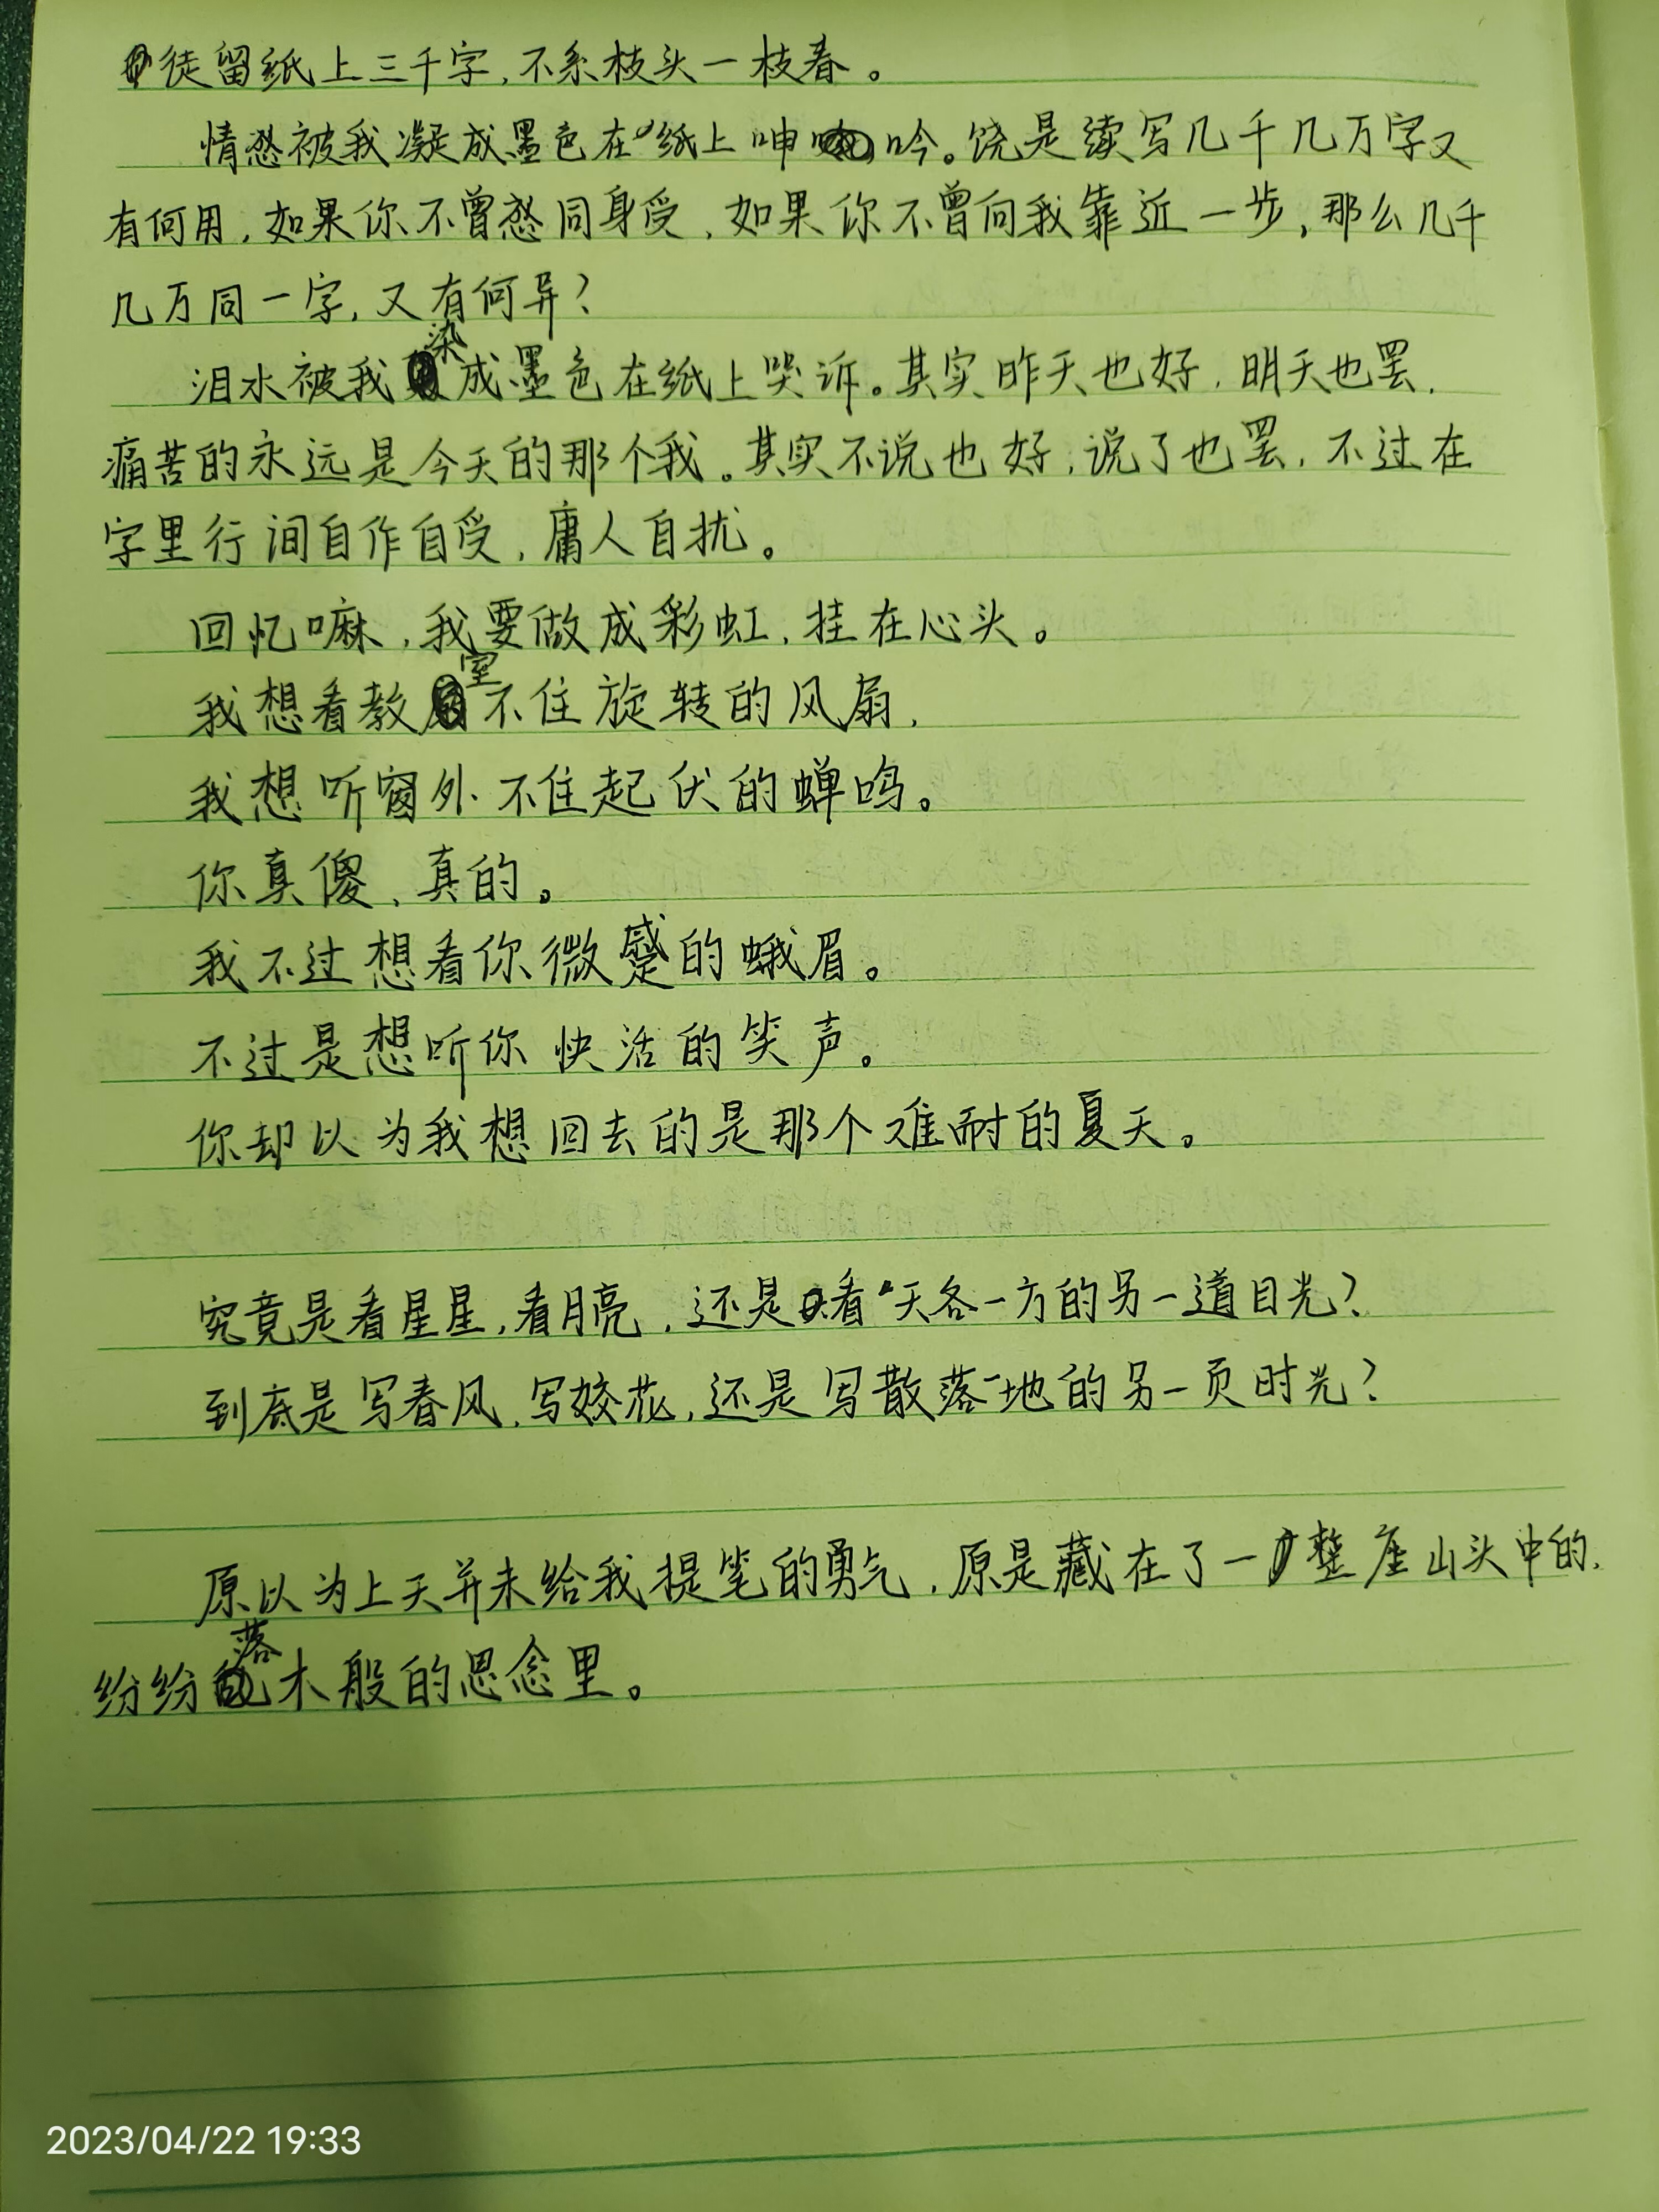 徒留纸上三千字，不系枝头一枝春。
情愁被我凝成墨色在纸上呻吟。饶是续写几千几万字又
有何用，如果你不曾愁同身受，如果你不曾向我靠近一步，那么几千
几万同一字，又有何异？
泪水被我染成墨色在纸上哭诉。其实昨天也好，明天也罢，
痛苦的永远是今天的那个我。其实不说也好，说了也罢，不过在
字里行间自作自受，庸人自扰。
回忆嘛，我要做成彩虹，挂在心头。
我想看教室不住旋转的风扇，
我想听窗外不住起伏的蝉鸣。
你真傻，真的。
我不过想看你微蹙的蛾眉。
不过是想听你快活的笑声。
你却以为我想回去的是那个难耐的夏天。
究竟是看星星，看月亮，还是看天各一方的另一道目光？
到底是写春风，写姣花，还是写散落一地的另一页时光？
原以为上天并未给我提笔的勇气，原是藏在了一整座山头中的，
纷纷落木般的思念里。
2023/04/22 19:33